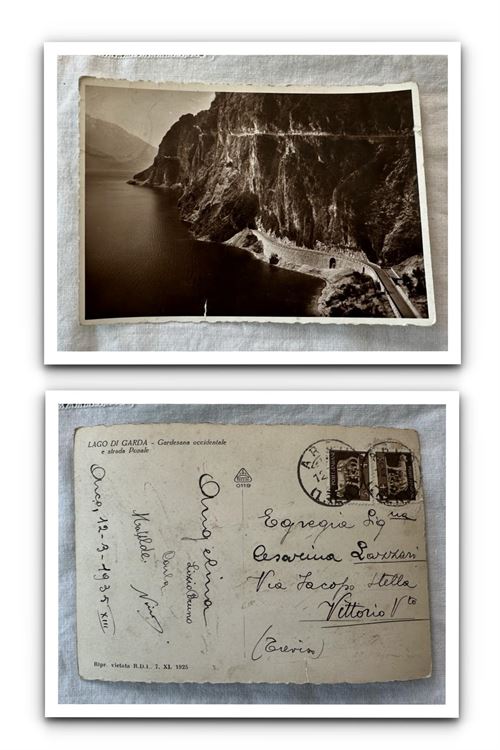 LAGO DI GARDA - Gardesana occidentale
e strada Ponale
0119
Arco, 12-3-1935 XIII
Matilde
Carla
Nino
Angelina
Egregia Sig.na
Cesarina Lazzari
Via Jacopo Stella
Vittorio V.to
(Treviso)
Ripr. vietata R.D.L. 7. XI. 1925